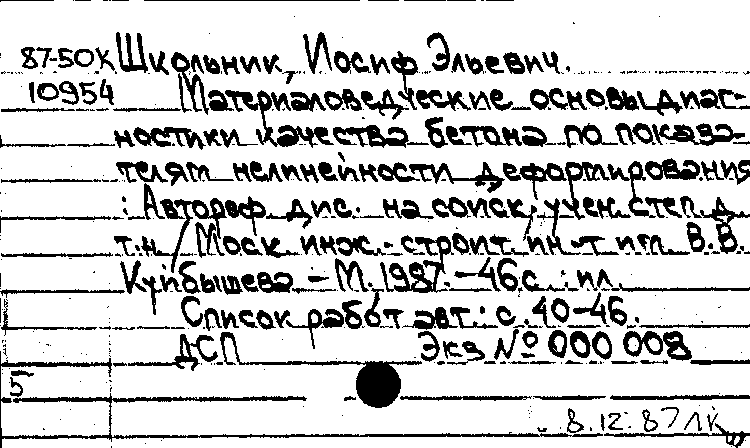 87-50К Школьник, Иосиф Эльевич.
10954 Материаловедческие основы диаг-
ностики качества бетона по показа-
телям нелинейности деформирования
: Автореф. дис. на соиск. учен. степ. д.
т.н. / Моск. инж.-строит. ин-т им. В.В.
Куйбышева - М. 1987. - 46 с. : ил.
Список работ авт.: с. 40-46.
ДСП Экз № 000 008
5
8.12.87 ЛК